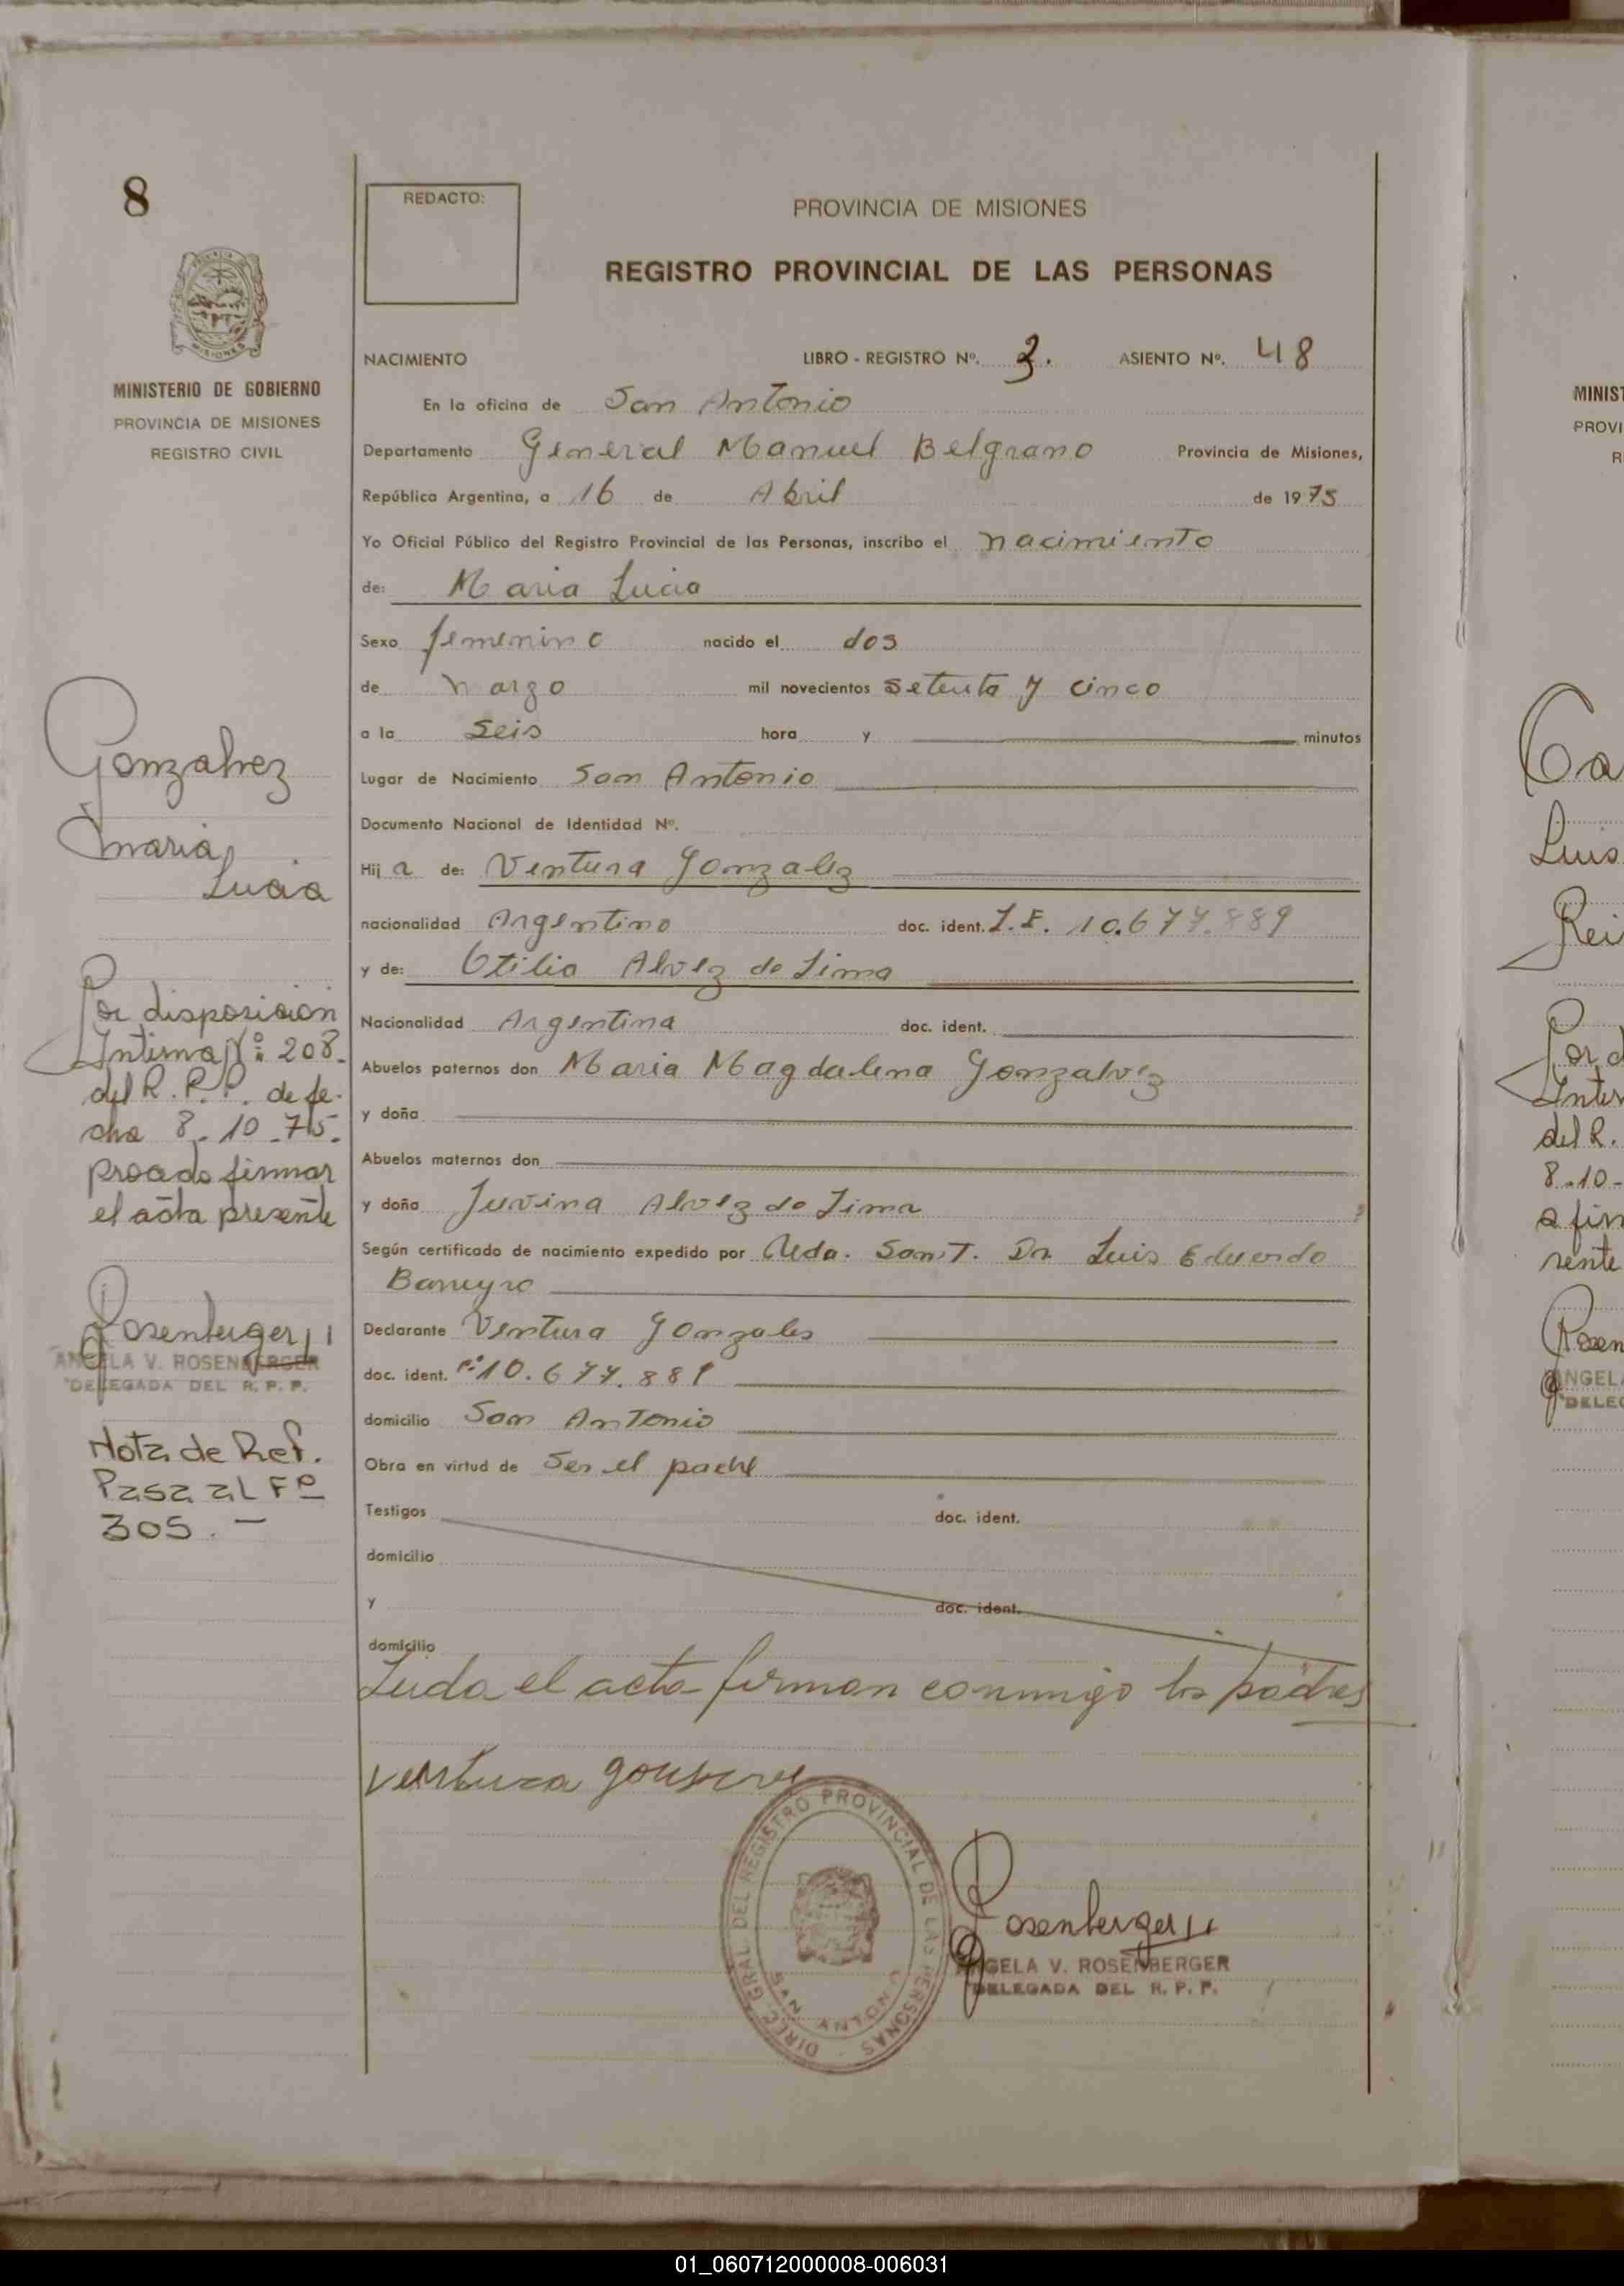 8
REDACTO:
PROVINCIA DE MISIONES
REGISTRO PROVINCIAL DE LAS PERSONAS
MISIONES
MINISTERIO DE GOBIERNO
PROVINCIA DE MISIONES
REGISTRO CIVIL
NACIMIENTO LIBRO - REGISTRO Nº. 3. ASIENTO Nº. 48
En la oficina de San Antonio
Departamento General Manuel Belgrano Provincia de Misiones,
República Argentina, a 16 de Abril de 1975
Yo Oficial Público del Registro Provincial de las Personas, inscribo el nacimiento
de: Maria Lucia
Sexo femenino nacido el dos
de marzo mil novecientos setenta y cinco
a la seis hora y minutos
Lugar de Nacimiento San Antonio
Documento Nacional de Identidad Nº.
Hij a de: Ventura Gonzalez
nacionalidad Argentino doc. ident. 10.677.889
y de: Otilia Alvez de Lima
Nacionalidad Argentina doc. ident.
Abuelos paternos don Maria Magdalena Gonzalvez
y doña
Abuelos maternos don
y doña Juvina Alvez de Lima
Según certificado de nacimiento expedido por Sanit. Dr Luis Eduardo
Declarante Ventura Gonzales
doc. ident. Nº 10.677.889
domicilio San Antonio
Obra en virtud de Ser el padre
Testigos doc. ident.
domicilio
y doc. ident.
domicilio
Leida el acta firman conmigo los padres
ventura
DIREC. GRAL. DEL REGISTRO PROVINCIAL DE LAS PERSONAS
SAN ANTONIO
Rosenberger
ANGELA V. ROSENBERGER
DELEGADA DEL R. P. P.
Gonzalvez
Maria
Lucia
Por disposicion
Interna Nº 208.
del R. P. P. de fe-
cha 8-10-75.
procedo firmar
el acta presente
Rosenberger
ANGELA V. ROSENBERGER
DELEGADA DEL R. P. P.
Nota de Ref.
Pasa al Fº
305.-
MINIST
PROVI
R
Ca
Luis
Rei
Por d
Inter
del R.
8-10-
a fir
sente
Rosen
ANGELA
DELEG
01_060712000008-006031